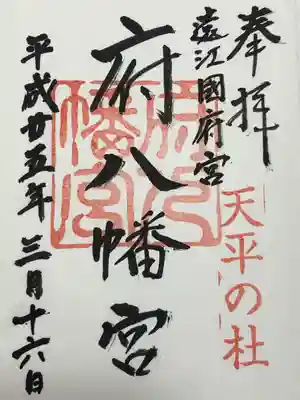 奉拝
天平の杜
遠江國府宮
府八幡宮
平成廿五年三月十六日